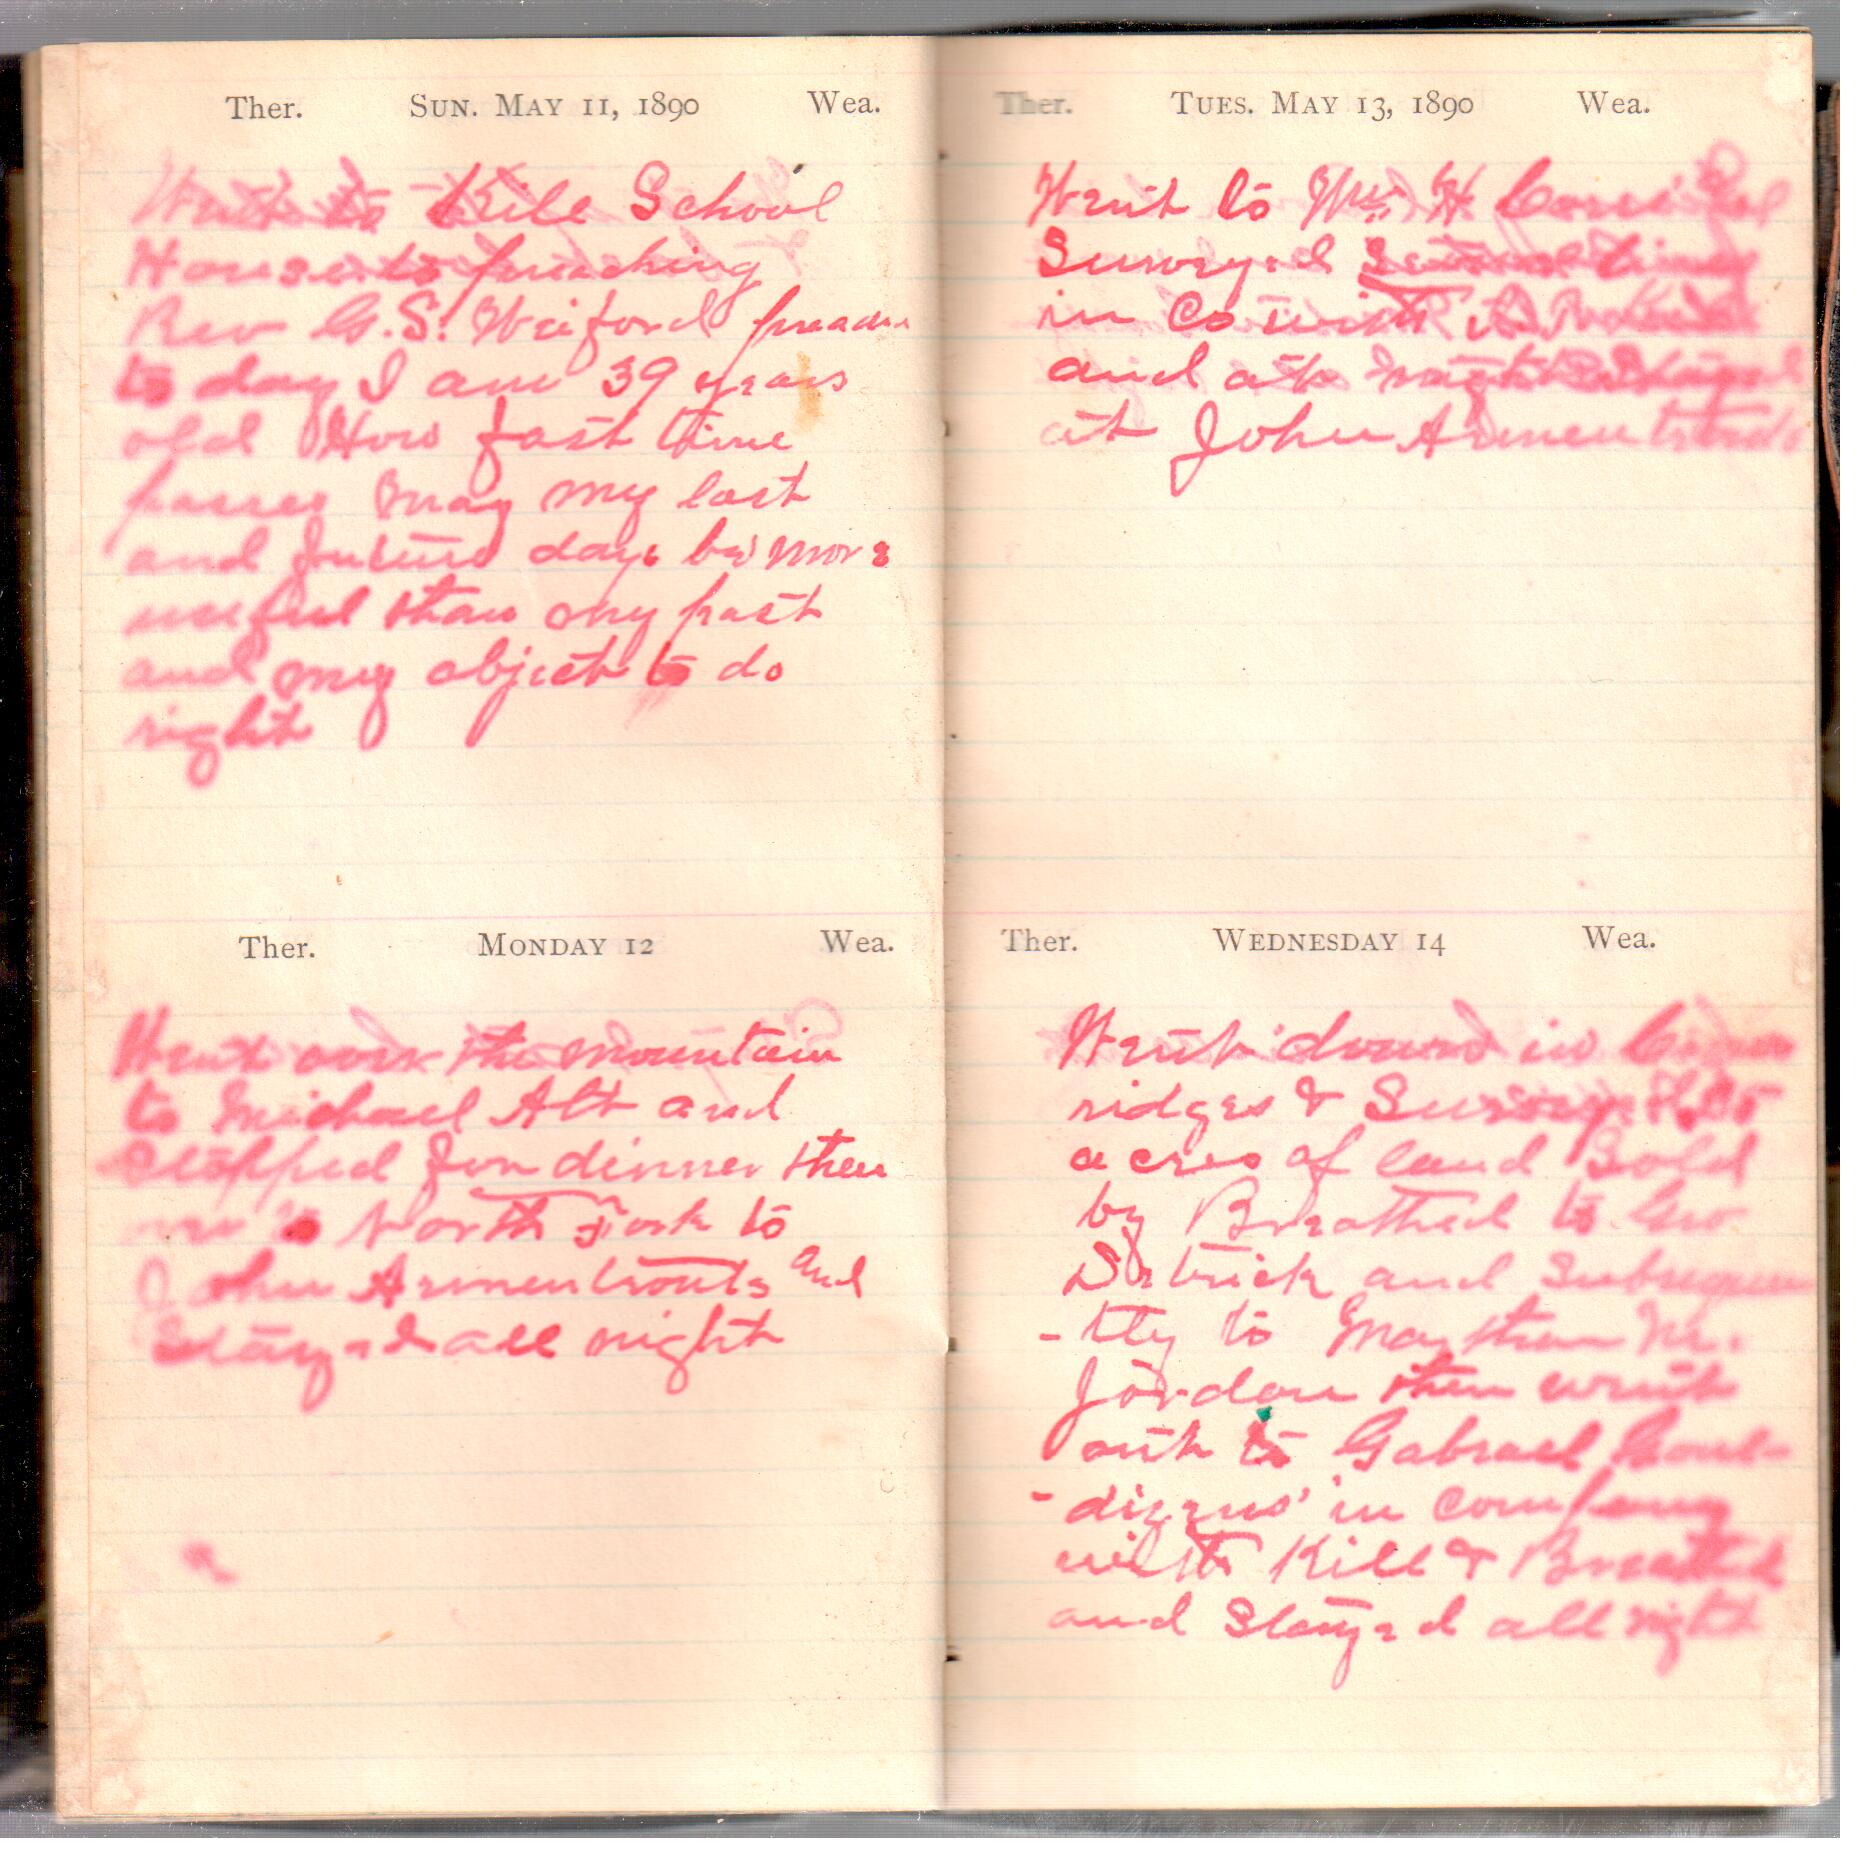 Ther. SUN. MAY 11, 1890 Wea.
Went to Kile School
House to preaching
Rev G. S. Weiford preach
to day I am 39 years
old How fast time
passes May my last
and future days be more
useful than my past
and my object to do
right
Ther. MONDAY 12 Wea.
Went over the mountain
to Michael Alt and
stopped for dinner then
to North Fork to
John Armentrouts and
Stayed all night
Ther. TUES. MAY 13, 1890 Wea.
Went to Wm H
Surveyed
in Co with
and at night Stayed
at John Armentrouts
Ther. WEDNESDAY 14 Wea.
Went down in
ridges & Survey
acres of land Sold
by Breathed to Geo
Detrick and Subsequen
-tly to M.
Jordan then went
out to Gabrael
in company
with Kile & Breathed
and Stayed all night